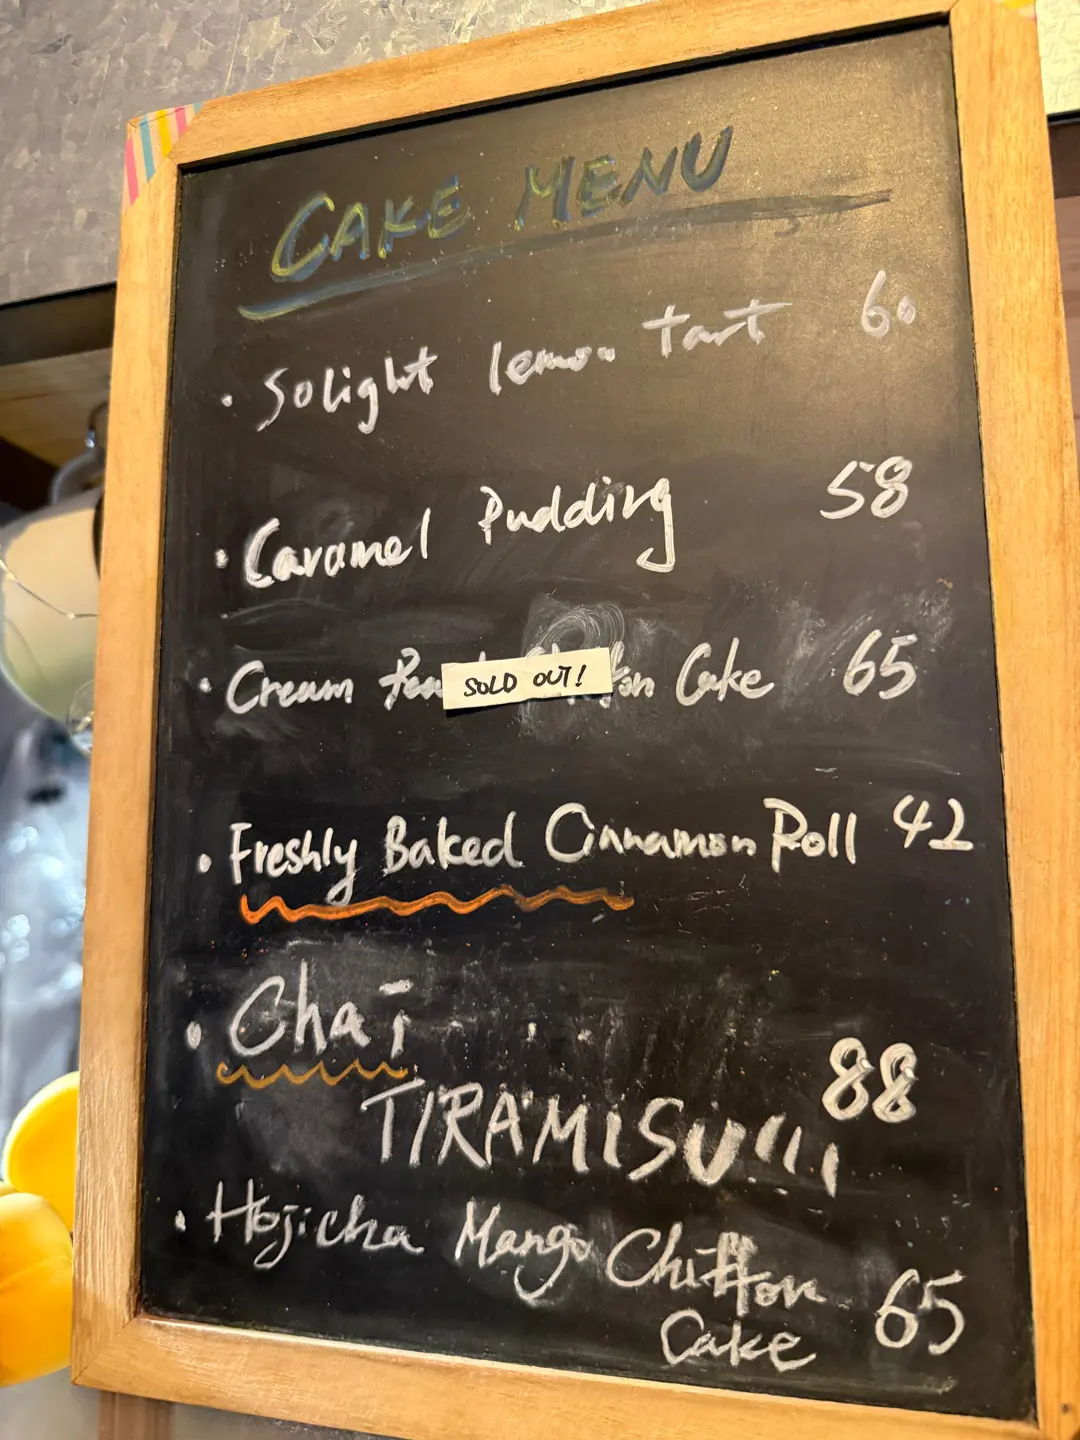 CAKE MENU
· Solight lemon tart 60
· Caramel Pudding 58
· Cream SOLD OUT! Cake 65
· Freshly Baked Cinnamon Roll 42
· Chai
TIRAMISU 88
· Hojicha Mango Chiffon
Cake 65